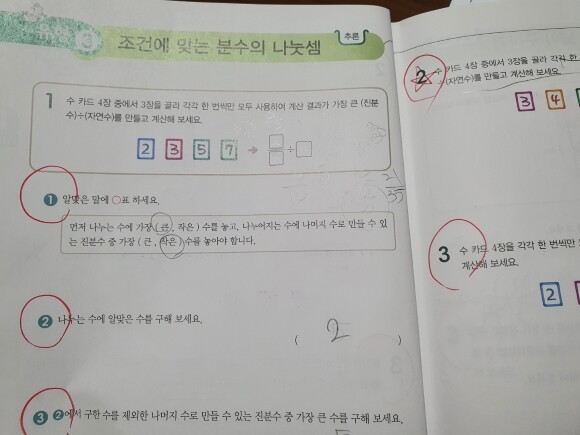 유형 3 조건에 맞는 분수의 나눗셈 추론
1 수 카드 4장 중에서 3장을 골라 각각 한 번씩만 모두 사용하여 계산 결과가 가장 큰 (진분
수)÷(자연수)를 만들고 계산해 보세요.
2 3 5 7 → □/□ ÷ □
21/35
1 알맞은 말에 ○표 하세요.
먼저 나누는 수에 가장 ( 큰 , 작은 ) 수를 놓고, 나누어지는 수에 나머지 수로 만들 수 있
는 진분수 중 가장 ( 큰 , 작은 ) 수를 놓아야 합니다.
2 나누는 수에 알맞은 수를 구해 보세요.
( 2 )
3 2에서 구한 수를 제외한 나머지 수로 만들 수 있는 진분수 중 가장 큰 수를 구해 보세요.
2 수 카드 4장 중에서 3장을 골라 각각 한
÷(자연수)를 만들고 계산해 보세요.
3 4
3 수 카드 4장을 각각 한 번씩만
계산해 보세요.
2